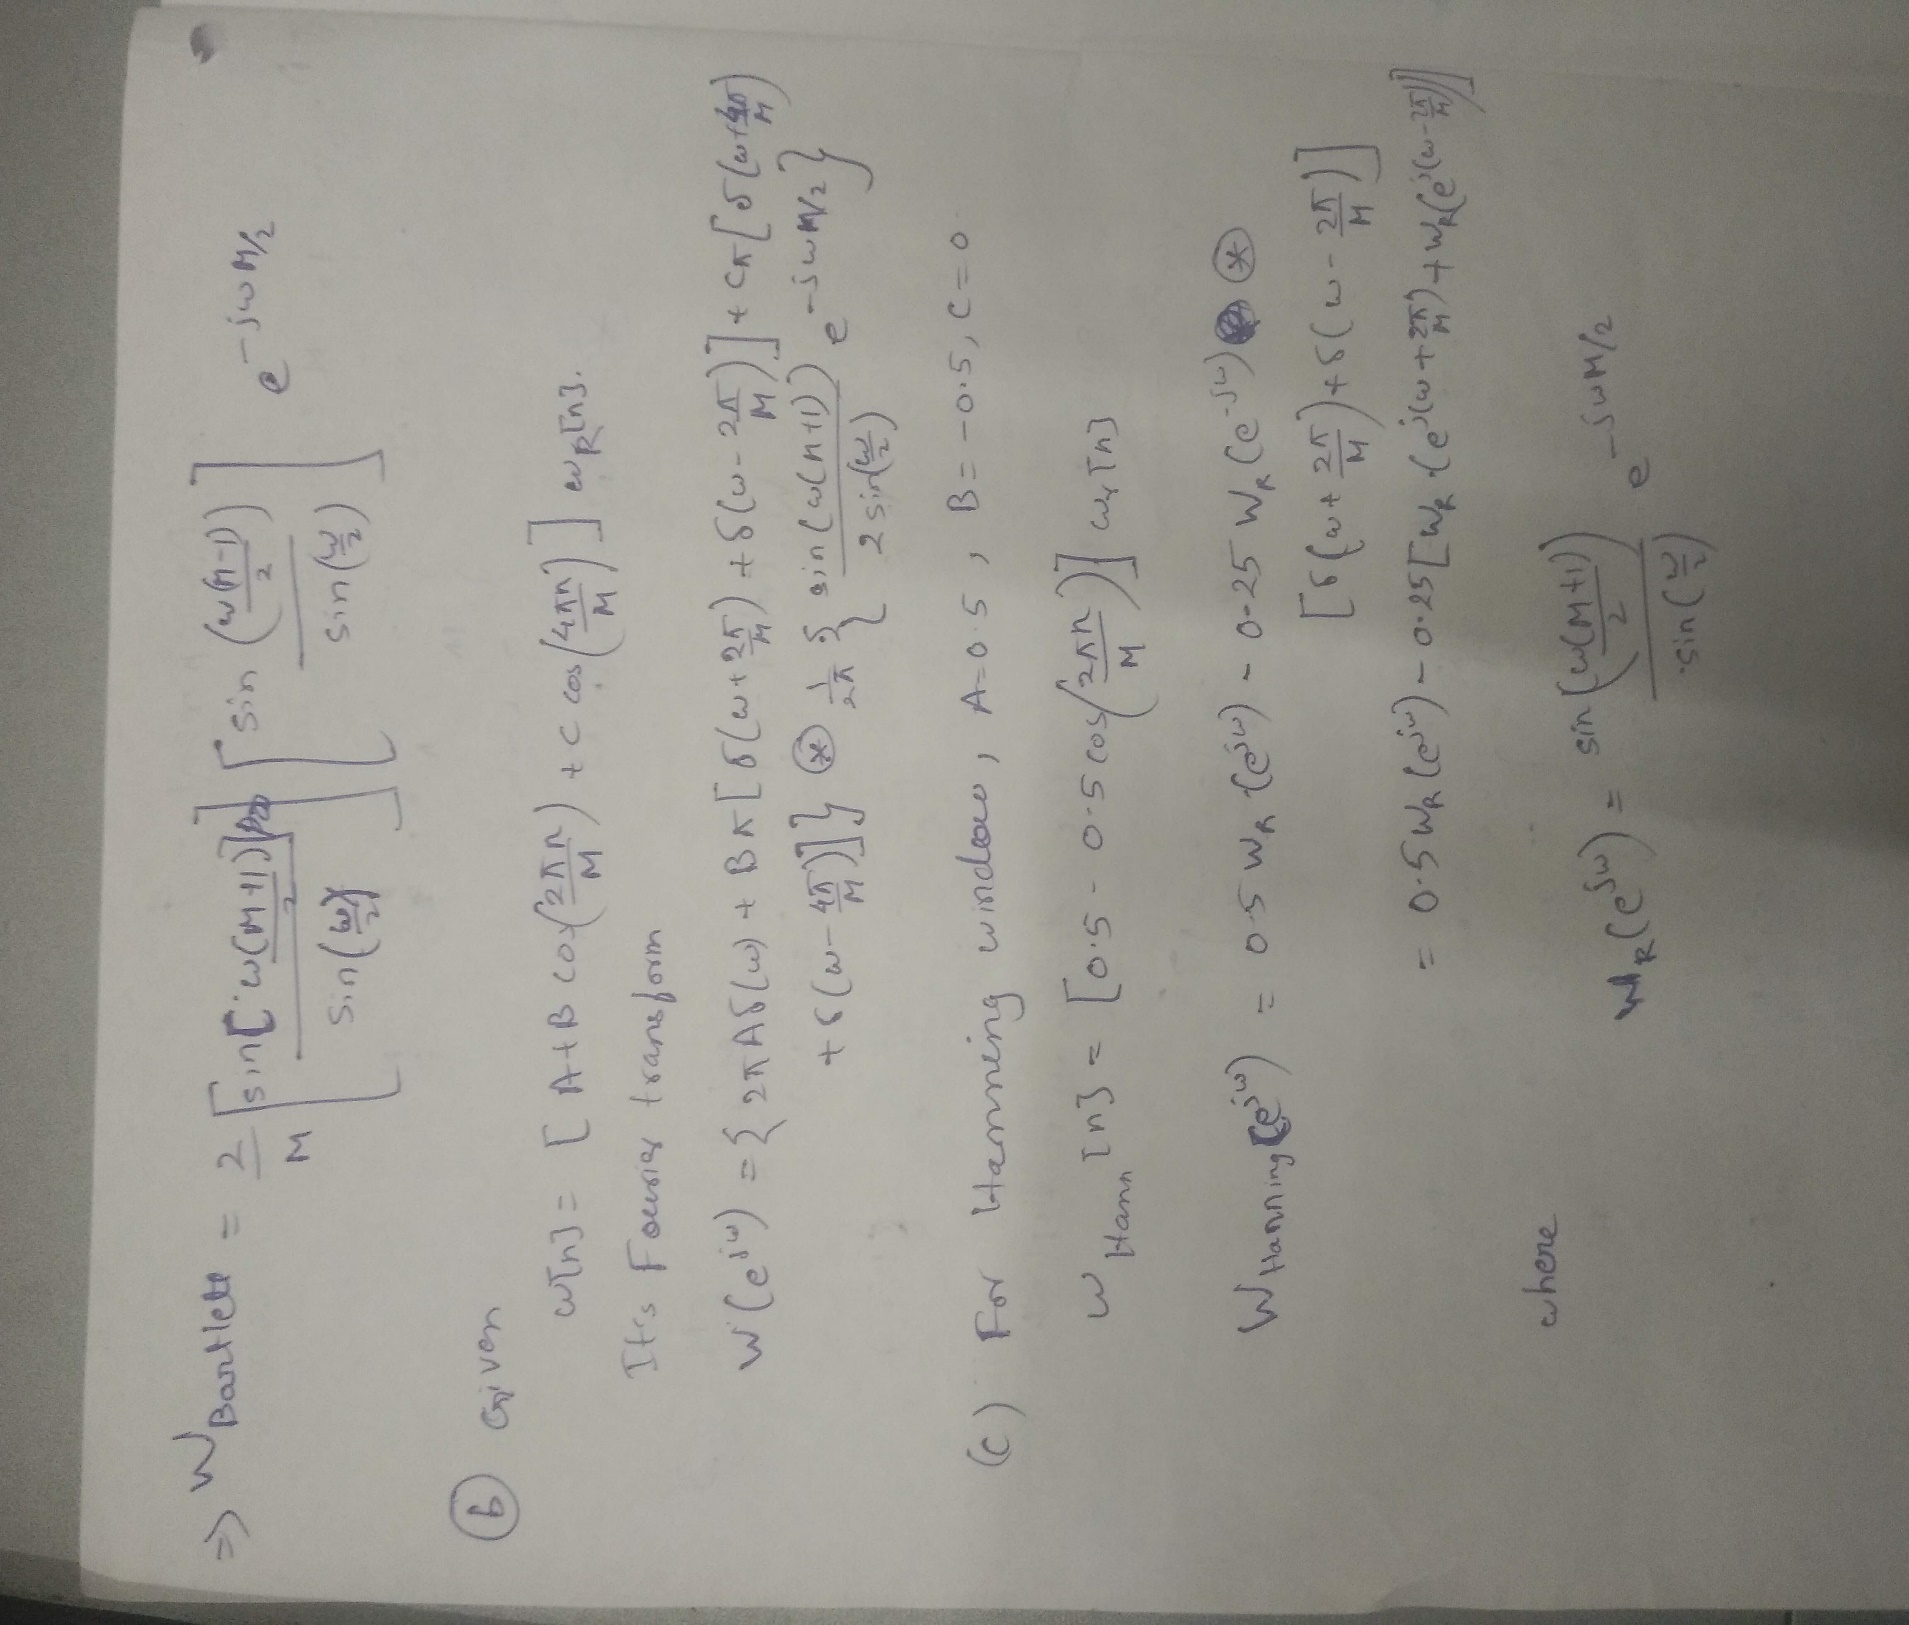 ⇒ W_Bartlett = 2/M [ sin[ω(M+1)/2] / sin(ω/2) ] [ sin(ω(M-1)/2) / sin(ω/2) ] e^{-jωM/2}
(b) Given
w[n] = [A+B cos(2πn/M) + C cos(4πn/M)] w_R[n].
It's Fourier transform
W(e^{jω}) = { 2πAδ(ω) + Bπ[δ(ω+2π/M) + δ(ω-2π/M)] + Cπ[δ(ω+4π/M)
+ δ(ω-4π/M)]} ⊛ 1/2π { sin(ω(M+1)) / 2 sin(ω/2) e^{-jωM/2} }
(c) For Hanning window, A=0.5, B=-0.5, C=0
w_Hann[n] = [0.5 - 0.5 cos(2πn/M)] w_r[n]
W_Hanning(e^{jω}) = 0.5 W_R(e^{jω}) - 0.25 W_R(e^{-jω}) ⊛
[δ(ω+2π/M) + δ(ω-2π/M)]
= 0.5 W_R(e^{jω}) - 0.25[W_R(e^{j(ω+2π/M)}) + W_R(e^{j(ω-2π/M)})]
where W_R(e^{jω}) = sin(ω(M+1)/2) / sin(ω/2) e^{-jωM/2}